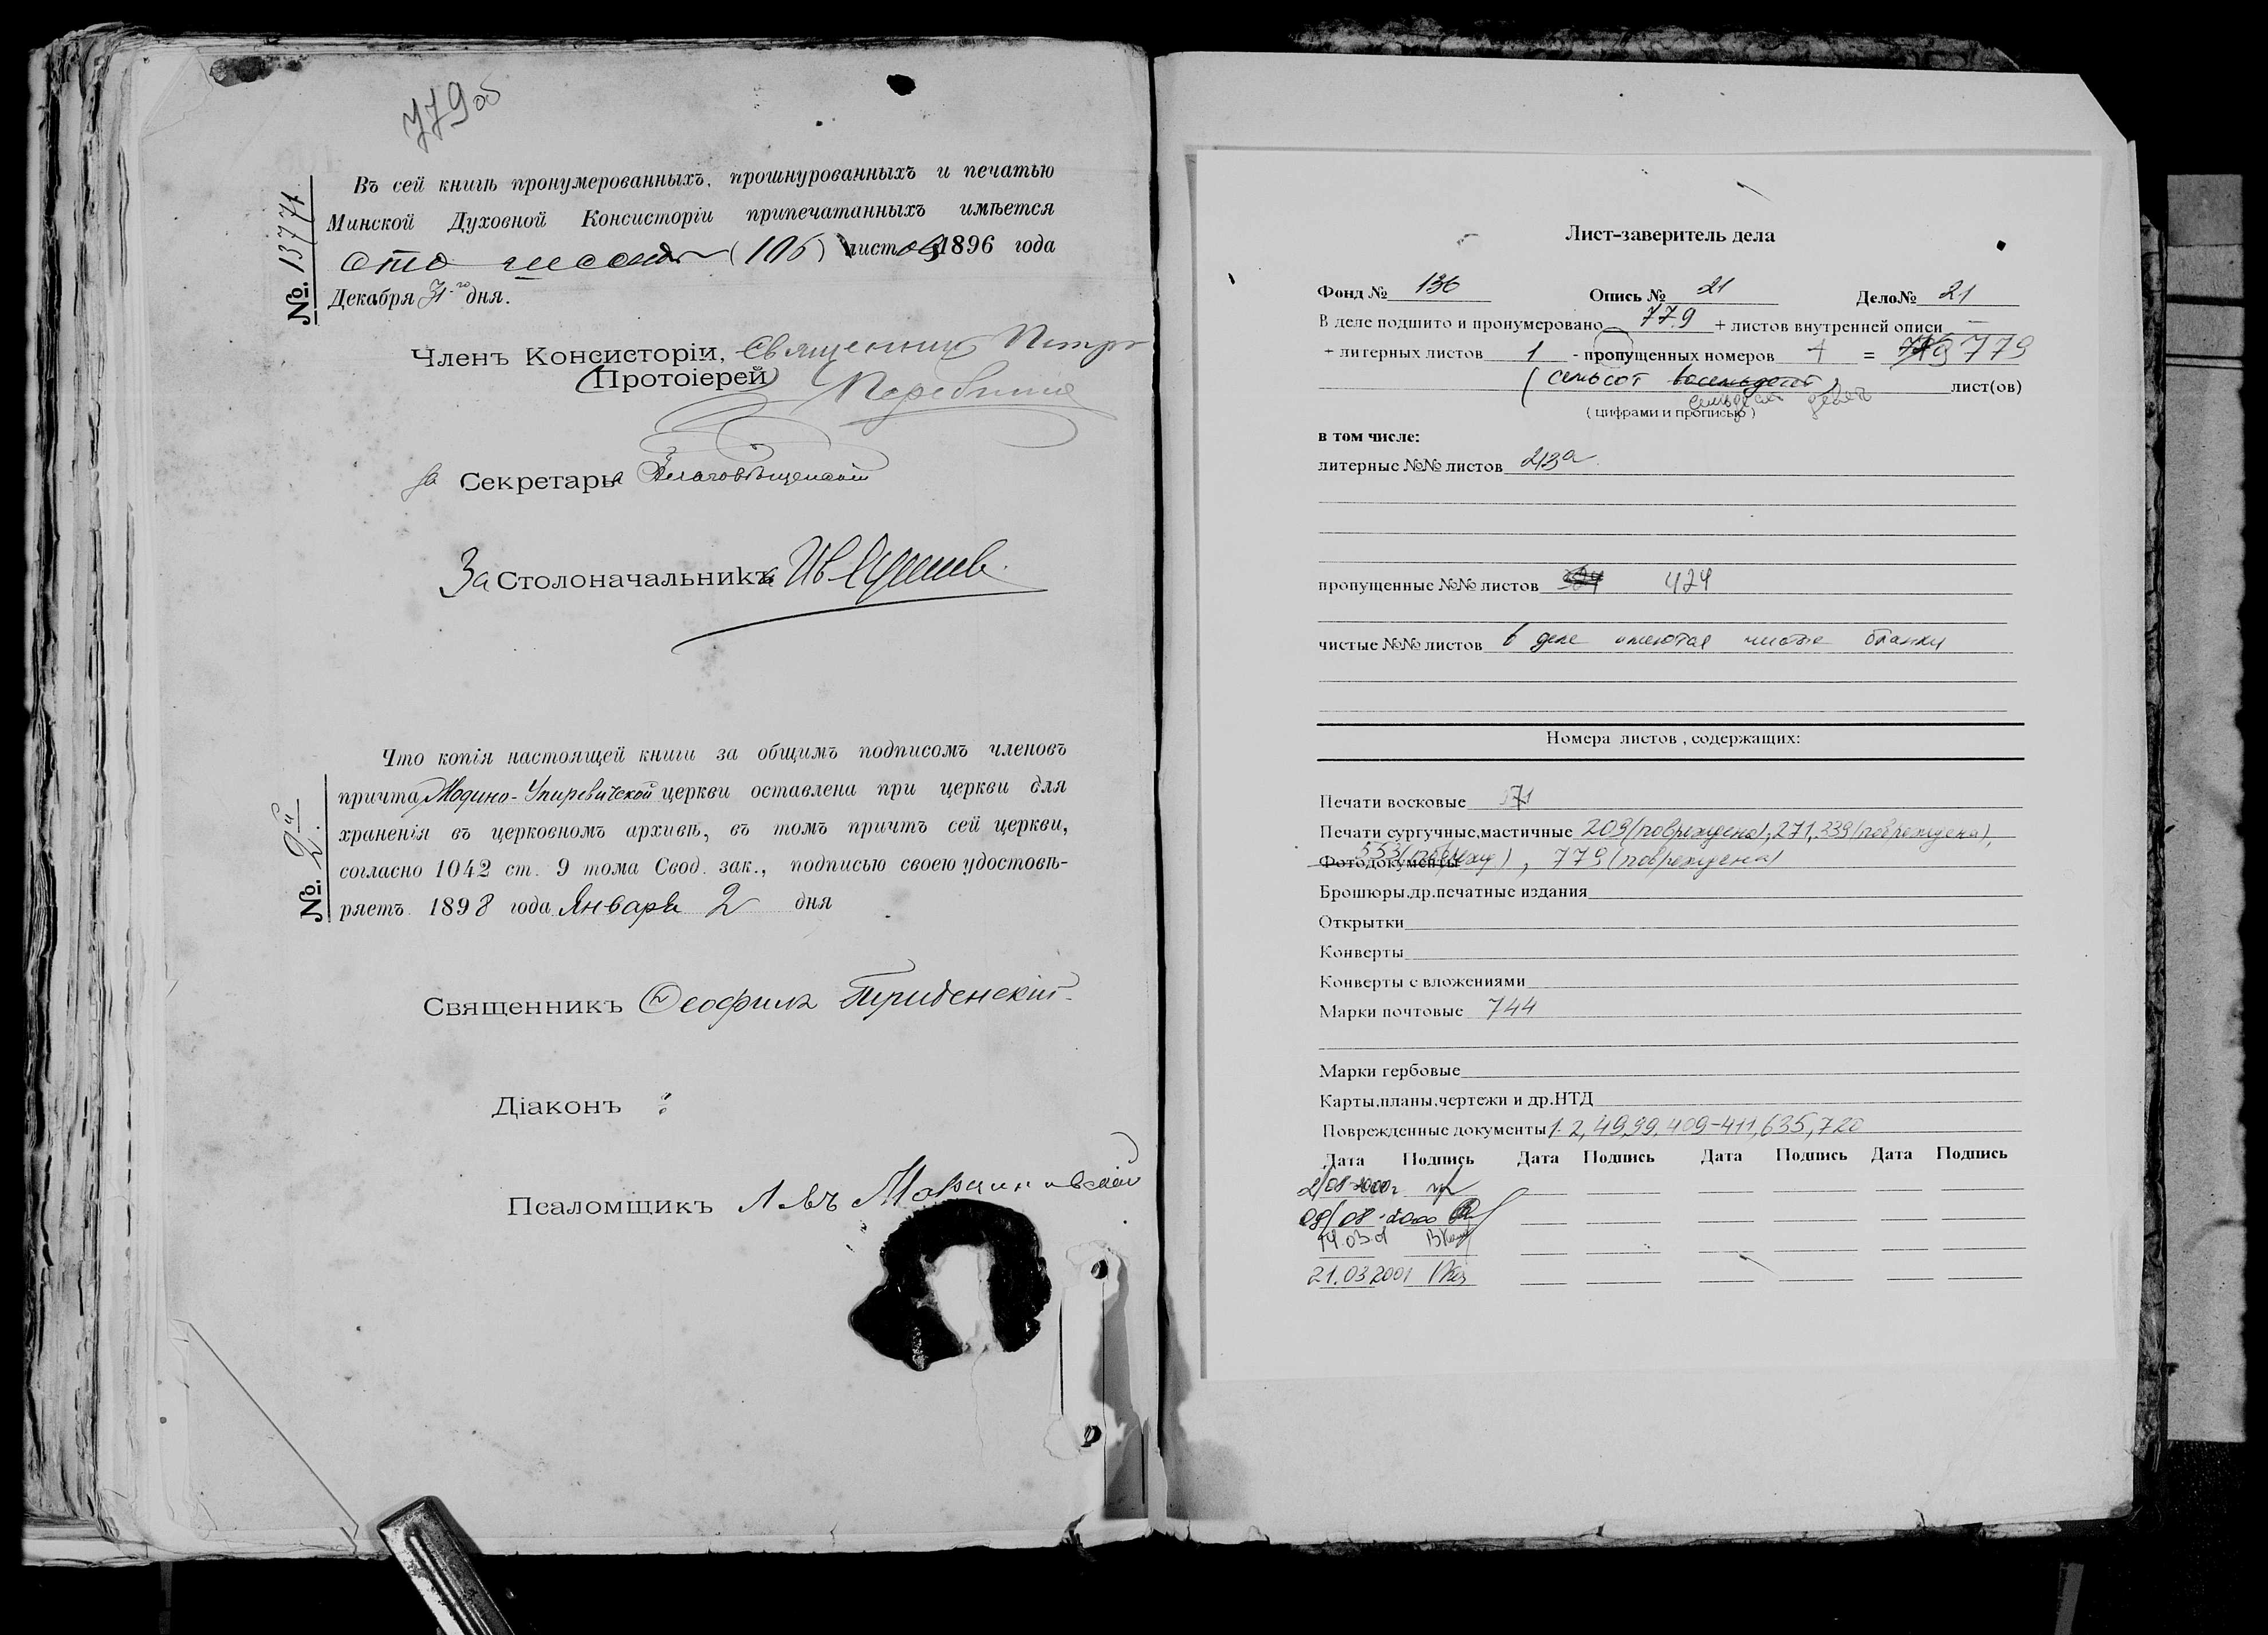 779 об
№ 13771.
Въ сей книгѣ пронумерованныхъ, прошнурованныхъ и печатью
Минской Духовной Консисторіи припечатанныхъ имѣется
сто шесть (106) листовъ 1896 года
Декабря 31-го дня.
Членъ Консисторіи, Священникъ Петръ
(Протоіерей)
За Секретаря Благовѣщенскій
За Столоначальника Ив
№ 2й.
Что копія настоящей книги за общимъ подписомъ членовъ
причта Жодино-Упиревичской церкви оставлена при церкви для
храненія въ церковномъ архивѣ, въ томъ причтъ сей церкви,
согласно 1042 ст. 9 тома Свод. зак., подписью своею удостовѣ-
ряетъ 1898 года Января 2 дня
Священникъ Ѳеофилъ
Діаконъ :
Псаломщикъ Левъ
Лист-заверитель дела
Фонд № 136 Опись № 21 Дело№ 21
В деле подшито и пронумеровано 779 + листов внутренней описи —
+ литерных листов 1 - пропущенных номеров 1 = 779
(семьсот восемьдесят) лист(ов)
семьдесят девять
( цифрами и прописью )
в том числе:
литерные №№ листов 213а
пропущенные №№ листов 424
чистые №№ листов в деле имеются чистые бланки
Номера листов , содержащих:
Печати восковые 571
Печати сургучные,мастичные 209(повреждена), 271, 339(повреждена),
Фотодокументы 553(поврежд), 779(повреждена)
Брошюры,др.печатные издания
Открытки
Конверты
Конверты с вложениями
Марки почтовые 744
Марки гербовые
Карты,планы,чертежи и др.НТД
Поврежденные документы 1-2, 49, 99, 409-411, 635, 720
Дата Подпись Дата Подпись Дата Подпись Дата Подпись
2/08-2000г
09/08-2000
14.03.01
21.03.2001